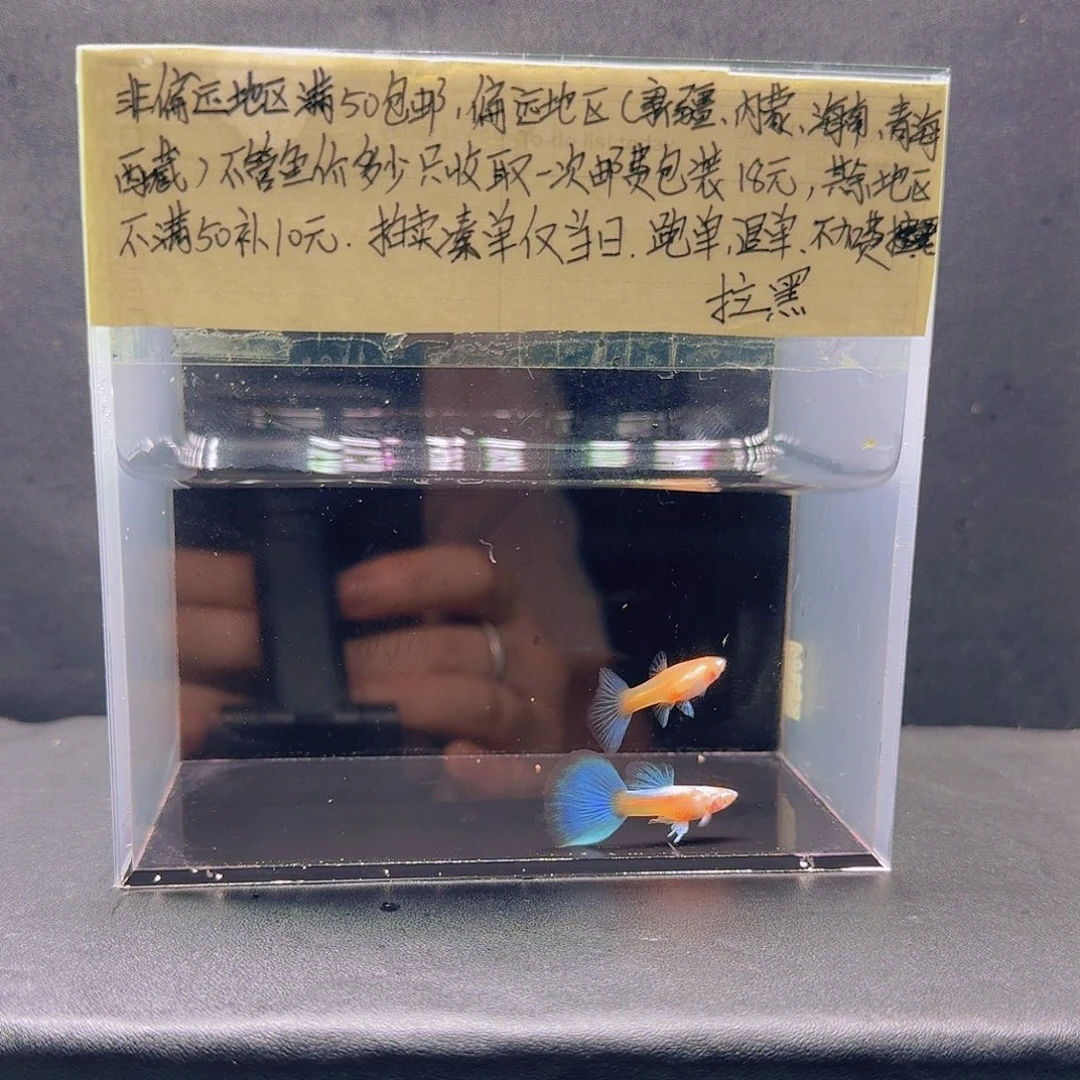 非偏远地区满50包邮,偏远地区(新疆、内蒙、海南、青海
西藏)不管鱼价多少只收取一次邮费包装18元,其余地区
不满50补10元.拍卖凑单仅当日.跑单,退单、不加费
拉黑